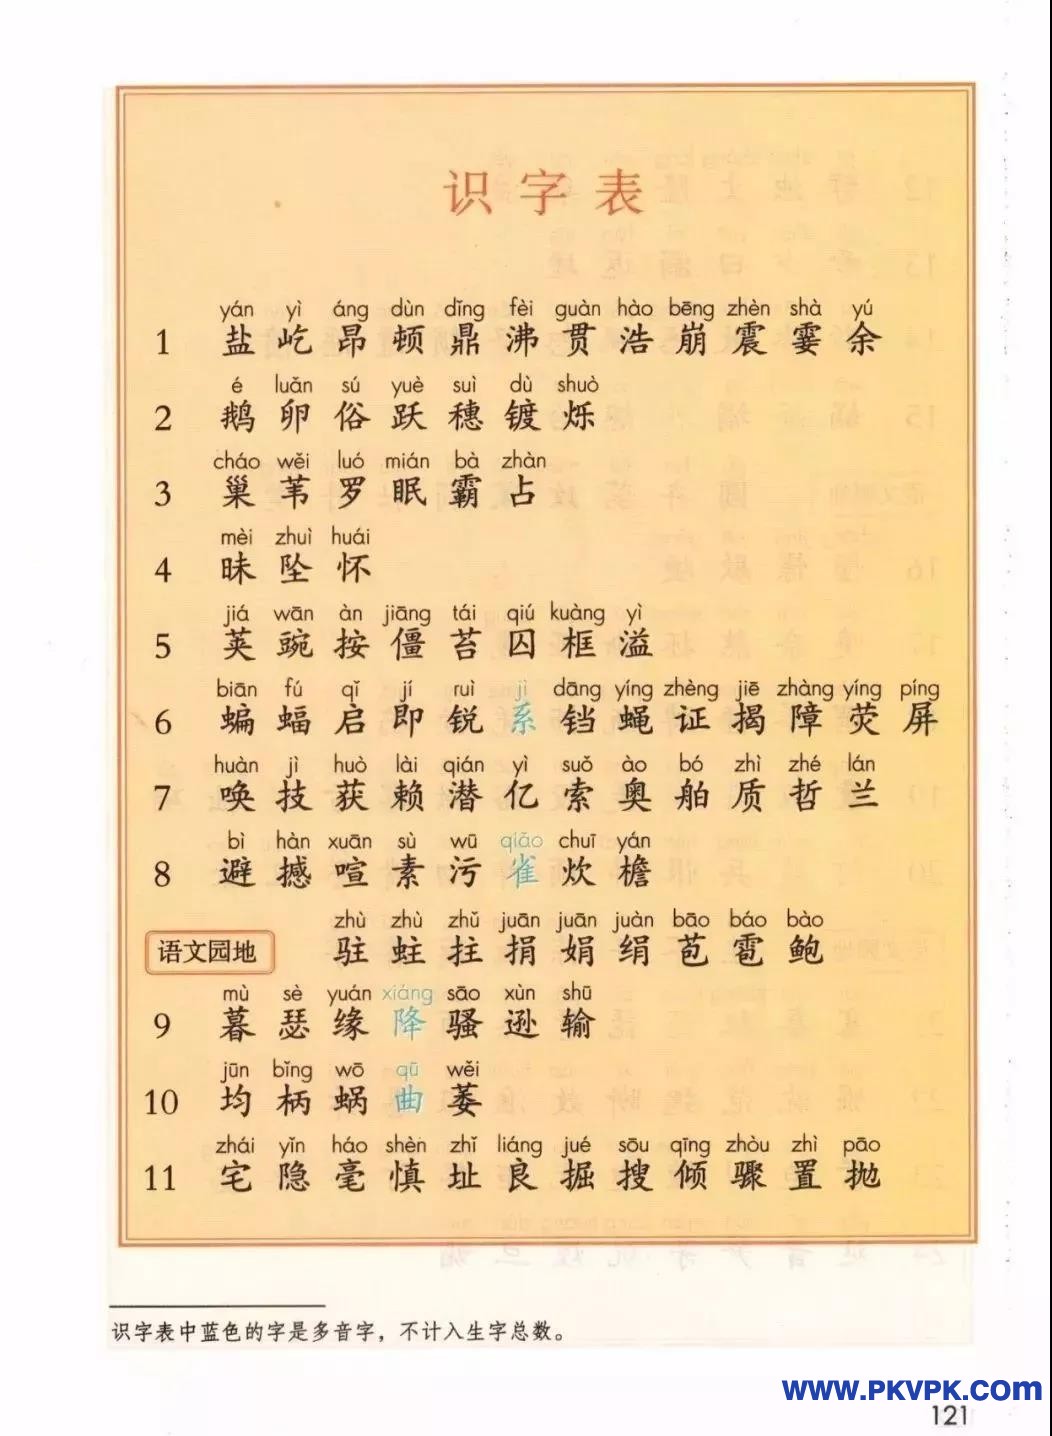 识字表
yán yì áng dùn dǐng fèi guàn hào bēng zhèn shà yú
1 盐 屹 昂 顿 鼎 沸 贯 浩 崩 震 霎 余
é luǎn sú yuè suì dù shuò
2 鹅 卵 俗 跃 穗 镀 烁
cháo wěi luó mián bà zhàn
3 巢 苇 罗 眠 霸 占
mèi zhuì huái
4 昧 坠 怀
jiá wān àn jiāng tái qiú kuàng yì
5 荚 豌 按 僵 苔 囚 框 溢
biān fú qǐ jí ruì jì dāng yíng zhèng jiē zhàng yíng píng
6 蝙 蝠 启 即 锐 系 铛 蝇 证 揭 障 荧 屏
huàn jì huò lài qián yì suǒ ào bó zhì zhé lán
7 唤 技 获 赖 潜 亿 索 奥 舶 质 哲 兰
bì hàn xuān sù wū qiǎo chuī yán
8 避 撼 喧 素 污 雀 炊 檐
zhù zhù zhǔ juān juān juàn bāo báo bào
语文园地 驻 蛀 拄 捐 娟 绢 苞 雹 鲍
mù sè yuán xiáng sāo xùn shū
9 暮 瑟 缘 降 骚 逊 输
jūn bǐng wō qū wěi
10 均 柄 蜗 曲 萎
zhái yǐn háo shèn zhǐ liáng jué sōu qīng zhòu zhì pāo
11 宅 隐 毫 慎 址 良 掘 搜 倾 骤 置 抛
识字表中蓝色的字是多音字，不计入生字总数。
www.PKVPK.com
121